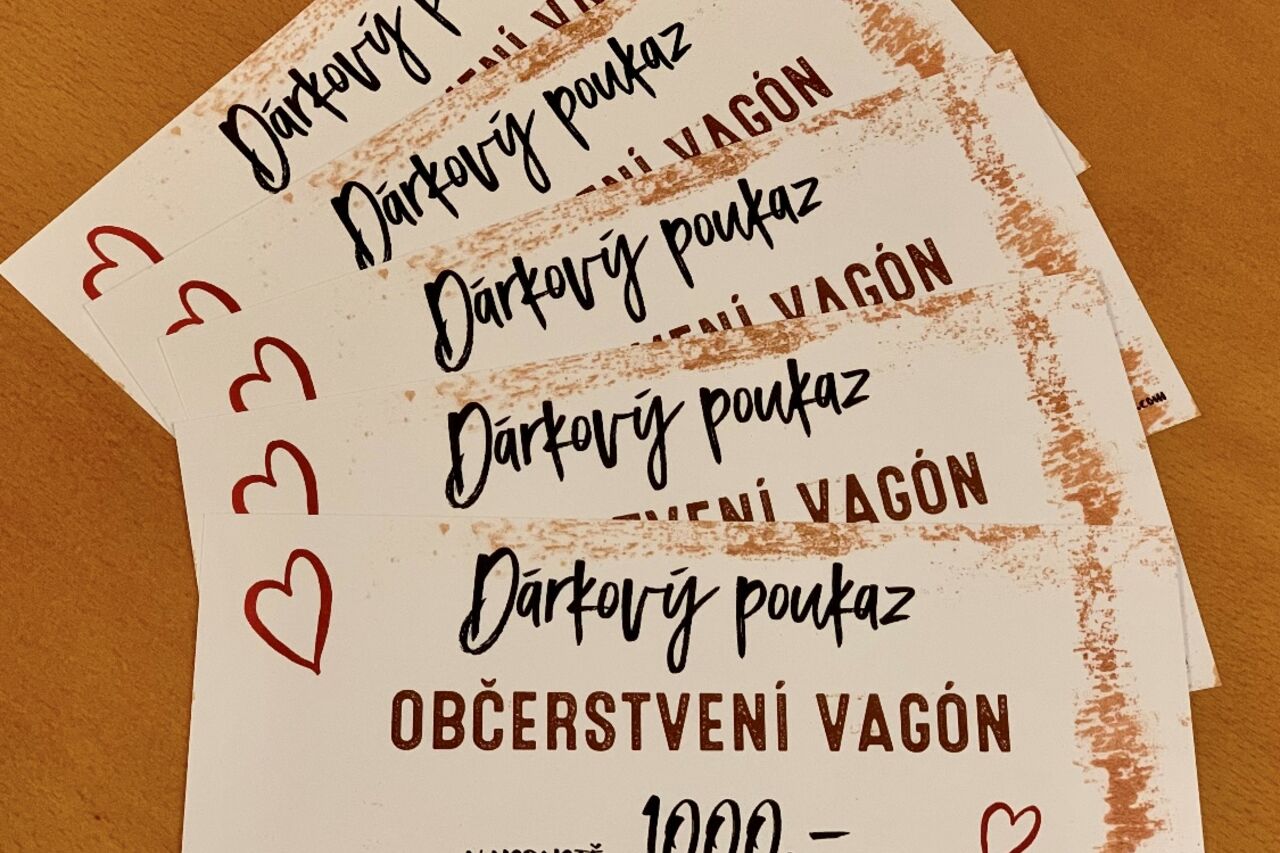 Dárkový
ENÍ VA
Dárkový poukaz
ENÍ VAGÓN
Dárkový poukaz
MENÍ VAGÓN
.com
Dárkový poukaz
TVENÍ VAGÓN
Dárkový poukaz
OBČERSTVENÍ VAGÓN
1000,-